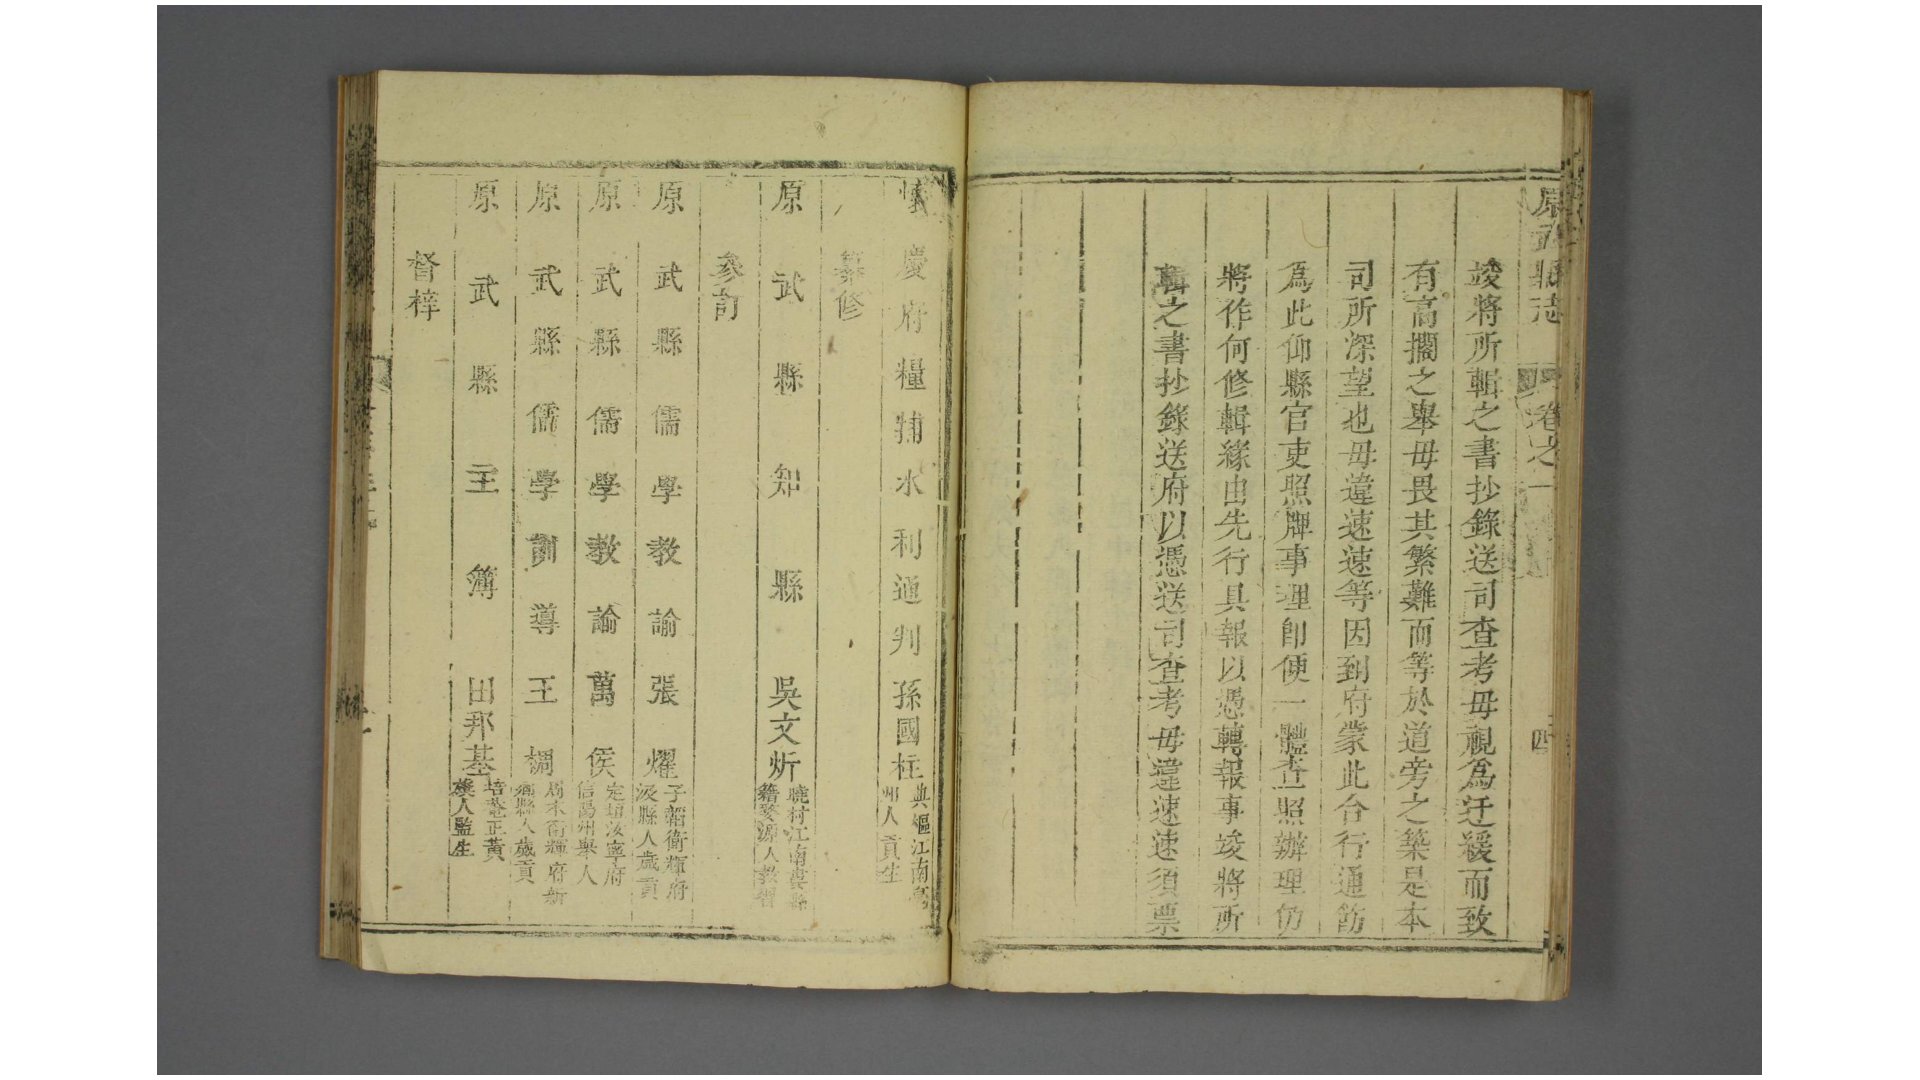 原武縣志
卷之一
四
竣將所輯之書抄錄送司查考毋視爲迂緩而致
有高擱之舉毋畏其繁難而等於道旁之築是本
司所深望也毋違速速等因到府蒙此合行通飭
爲此仰縣官吏照牌事理卽便一體查照辦理仍
將作何修輯緣由先行具報以憑轉報事竣將所
輯之書抄錄送府以憑送司查考毋違速速須票
懷慶府糧捕水利通判孫國柱
典樞江南亳
州人貢生
纂修
原武縣知縣吳文炘
曉村江南婁縣
籍婺源人敎習
參訂
原武縣儒學教諭張燿
子韜衛輝府
汲縣人歲貢
原武縣儒學教諭萬侯
定垣汝寧府
信陽州舉人
原武縣儒學訓導王椆
周木衛輝府新
鄉縣人歲貢
原武縣主簿田那基
培菴正黃
旗人監生
督梓